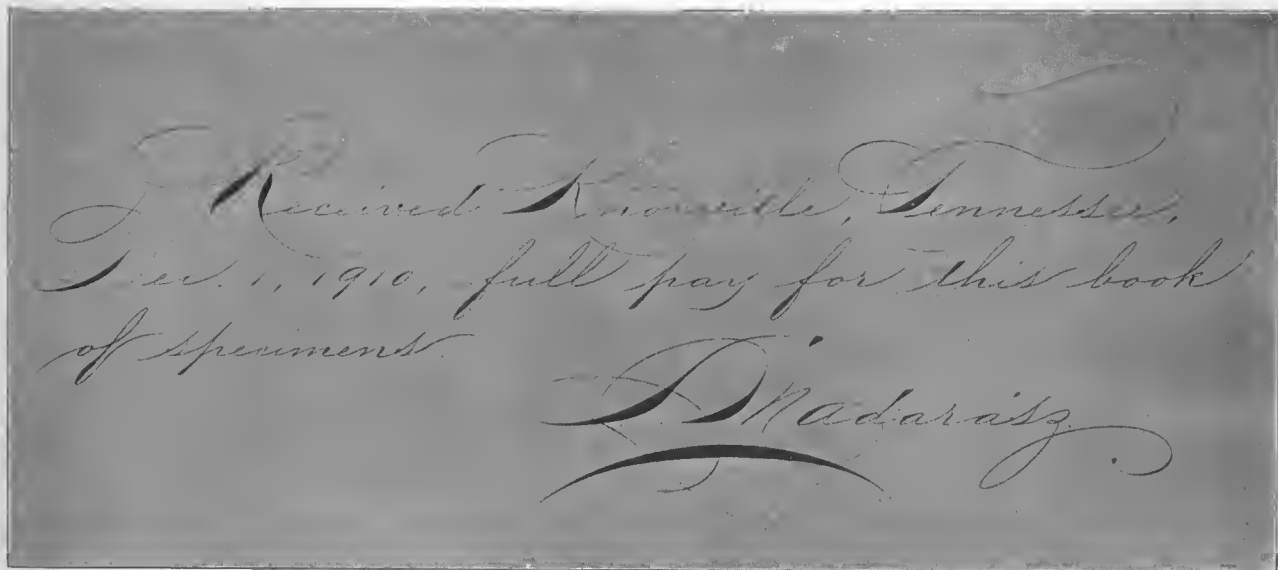 Received Knoxville, Tennessee,
Dec. 1, 1910, full pay for this book
of specimens.
L Madarász